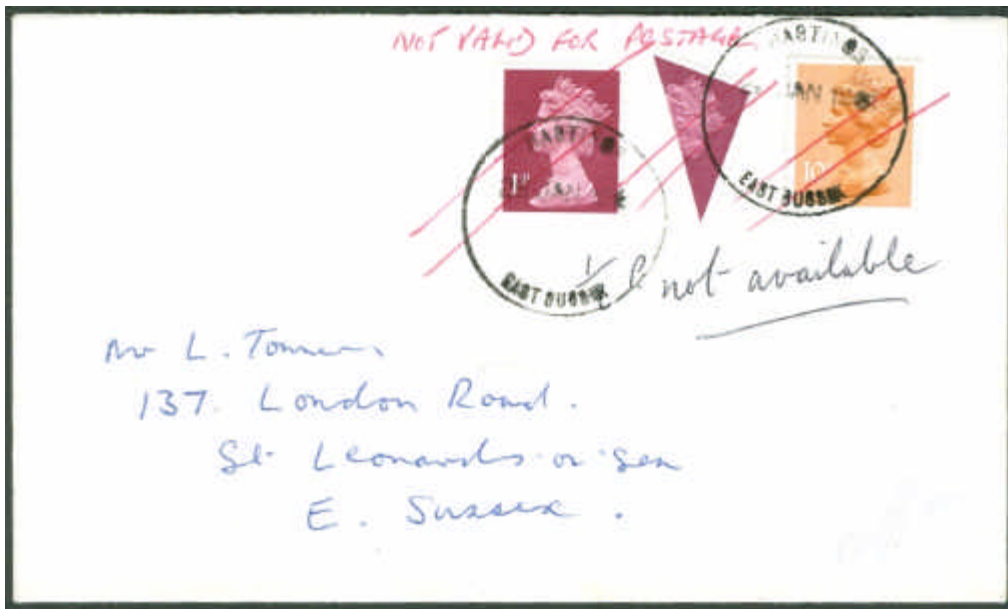 NOT VALID FOR POSTAGE
HASTINGS
JAN
EAST SUSSEX
1P
10
HASTINGS
EAST SUSSEX
½ P not available
Mr L.
137. London Road.
St Leonards-on-Sea
E. Sussex.